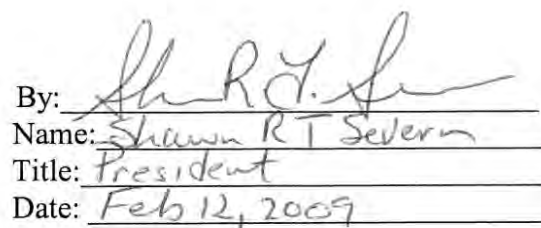 By: Shn R T. S
Name: Shawn R T Severn
Title: President
Date: Feb 12, 2009